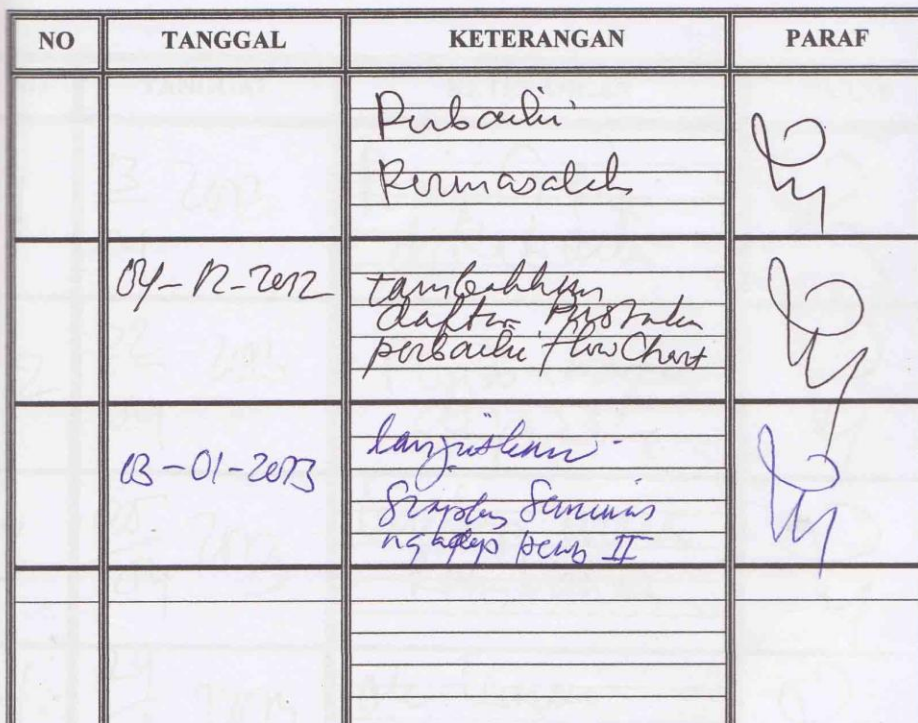 NO TANGGAL KETERANGAN PARAF
Perbaiki
Permasalah
04-12-2012 tambahkan
daftar Pustaka
perbaiki flowChart
03-01-2013 lanjutkan
Siapkan Seminar
ngadep pemb II